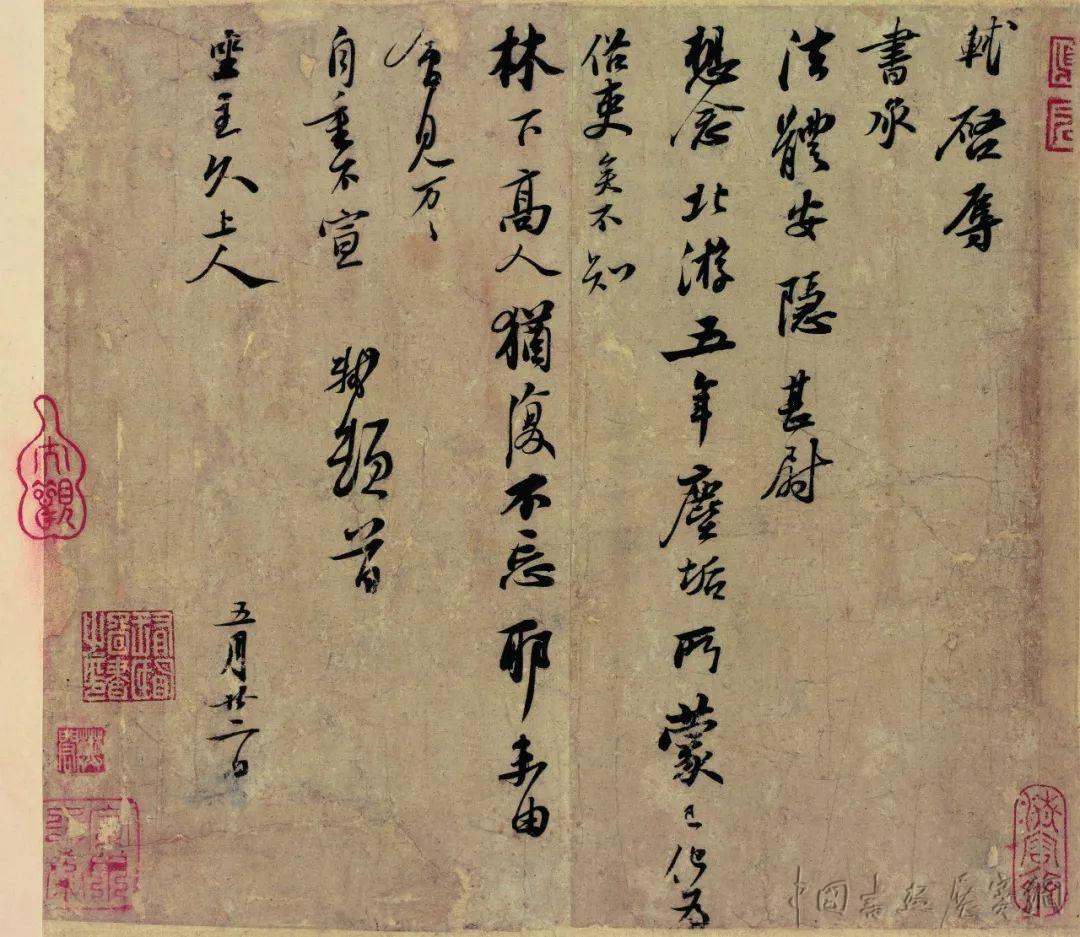 軾啓辱
書承
法體安隱甚尉
想念北游五年塵垢所蒙已化爲
俗吏矣不知
林下高人猶復不忘耶未由
會見万〻
自重不宣 軾頓首
坐主久上人
五月廿二日
大觀
中國書法展賽網